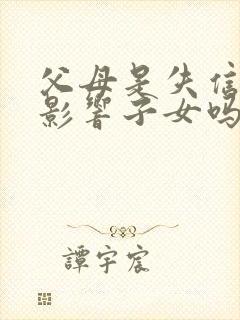 父母是失信
影響子女嗎
譚宇宸